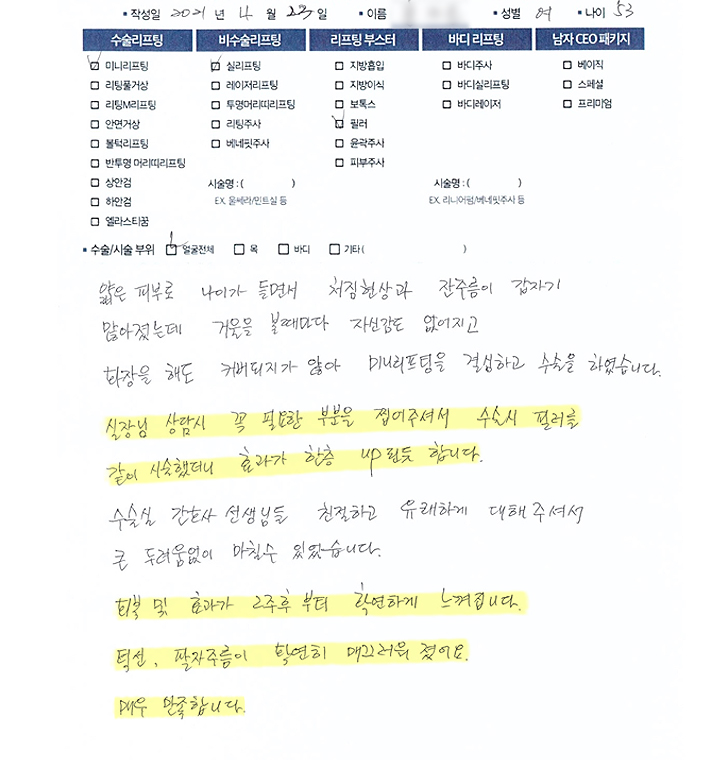 ▪ 작성일 2021 년 4 월 23 일 ▪ 이름 ▪ 성별 여 ▪ 나이 53
수술리프팅 비수술리프팅 리프팅 부스터 바디 리프팅 남자 CEO 패키지
미니리프팅 실리프팅 지방흡입 바디주사 베이직
리팅풀거상 레이저리프팅 지방이식 바디실리프팅 스페셜
리팅M리프팅 투명머리띠리프팅 보톡스 바디레이저 프리미엄
안면거상 리팅주사 필러
볼턱리프팅 베네핏주사 윤곽주사
반투명 머리띠리프팅 피부주사
상안검 시술명 : ( ) 시술명 : ( )
하안검 EX. 울쎄라/민트실 등 EX. 리니어펌/베네핏주사 등
엘라스티꿈
▪ 수술/시술 부위 얼굴전체 목 바디 기타 ( )
얇은 피부로 나이가 들면서 처짐현상과 잔주름이 갑자기
많아졌는데 거울을 볼때마다 자신감도 없어지고
화장을 해도 커버되지가 않아 미니리프팅을 결심하고 수술을 하였습니다.
실장님 상담시 꼭 필요한 부분을 찝어주셔서 수술시 필러를
같이 시술했더니 효과가 한층 up 된듯 합니다.
수술실 간호사 선생님들 친절하고 유쾌하게 대해 주셔서
큰 두려움없이 마칠수 있었습니다.
회복 및 효과가 2주후 부터 확연하게 느껴집니다.
턱선, 팔자주름이 확연히 매끄러워 졌어요.
매우 만족합니다.